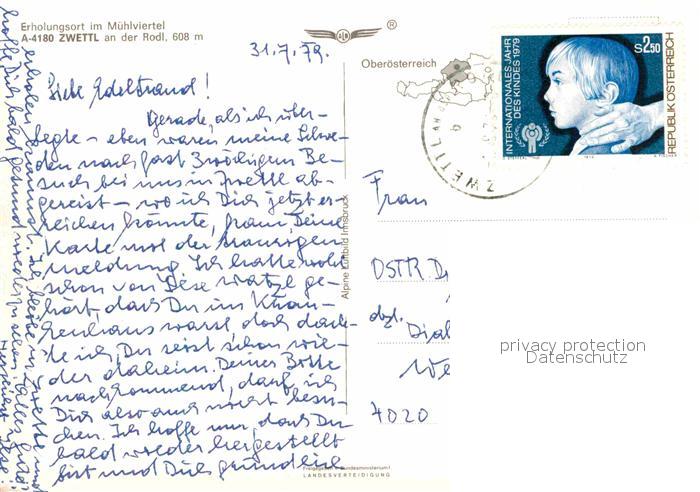 Erholungsort im Mühlviertel
A-4180 ZWETTL an der Rodl, 608 m
®
31.7.79.
Oberösterreich
Liebe Edeltraud!
Gerade, als ich über-
legte – eben waren meine Schwe-
den nach fast 3 wöchigem Be-
such bei uns in Zwettl ab-
gereist – wo ich Dich jetzt er-
reichen könnte, kam Deine
Karte mit der traurigen
Meldung. Ich hatte wohl
schon von Liese ge-
hört, dass Du im Kran-
kenhaus warst, doch dach-
te ich, Du seist schon wie-
der daheim. Deiner Bitte
nachkommend, darf ich
Dich also auch nicht besu-
chen. Ich hoffe nur, dass Du
bald wieder hergestellt
bist und Dich gründlich
erholen kannst. Ich bleibe in Zwettl und
hoffe Dich bald gesund wieder zu sehen. Alles Gute!
Alpine Luftbild Innsbruck
Freigegeben Bundesministerium f.
LANDESVERTEIDIGUNG
INTERNATIONALES JAHR
DES KINDES 1979
S 2.50
REPUBLIK ÖSTERREICH
1979
ZWETTL AN D
Frau
OSTR. D
dzt.
We
4020
privacy protection
Datenschutz